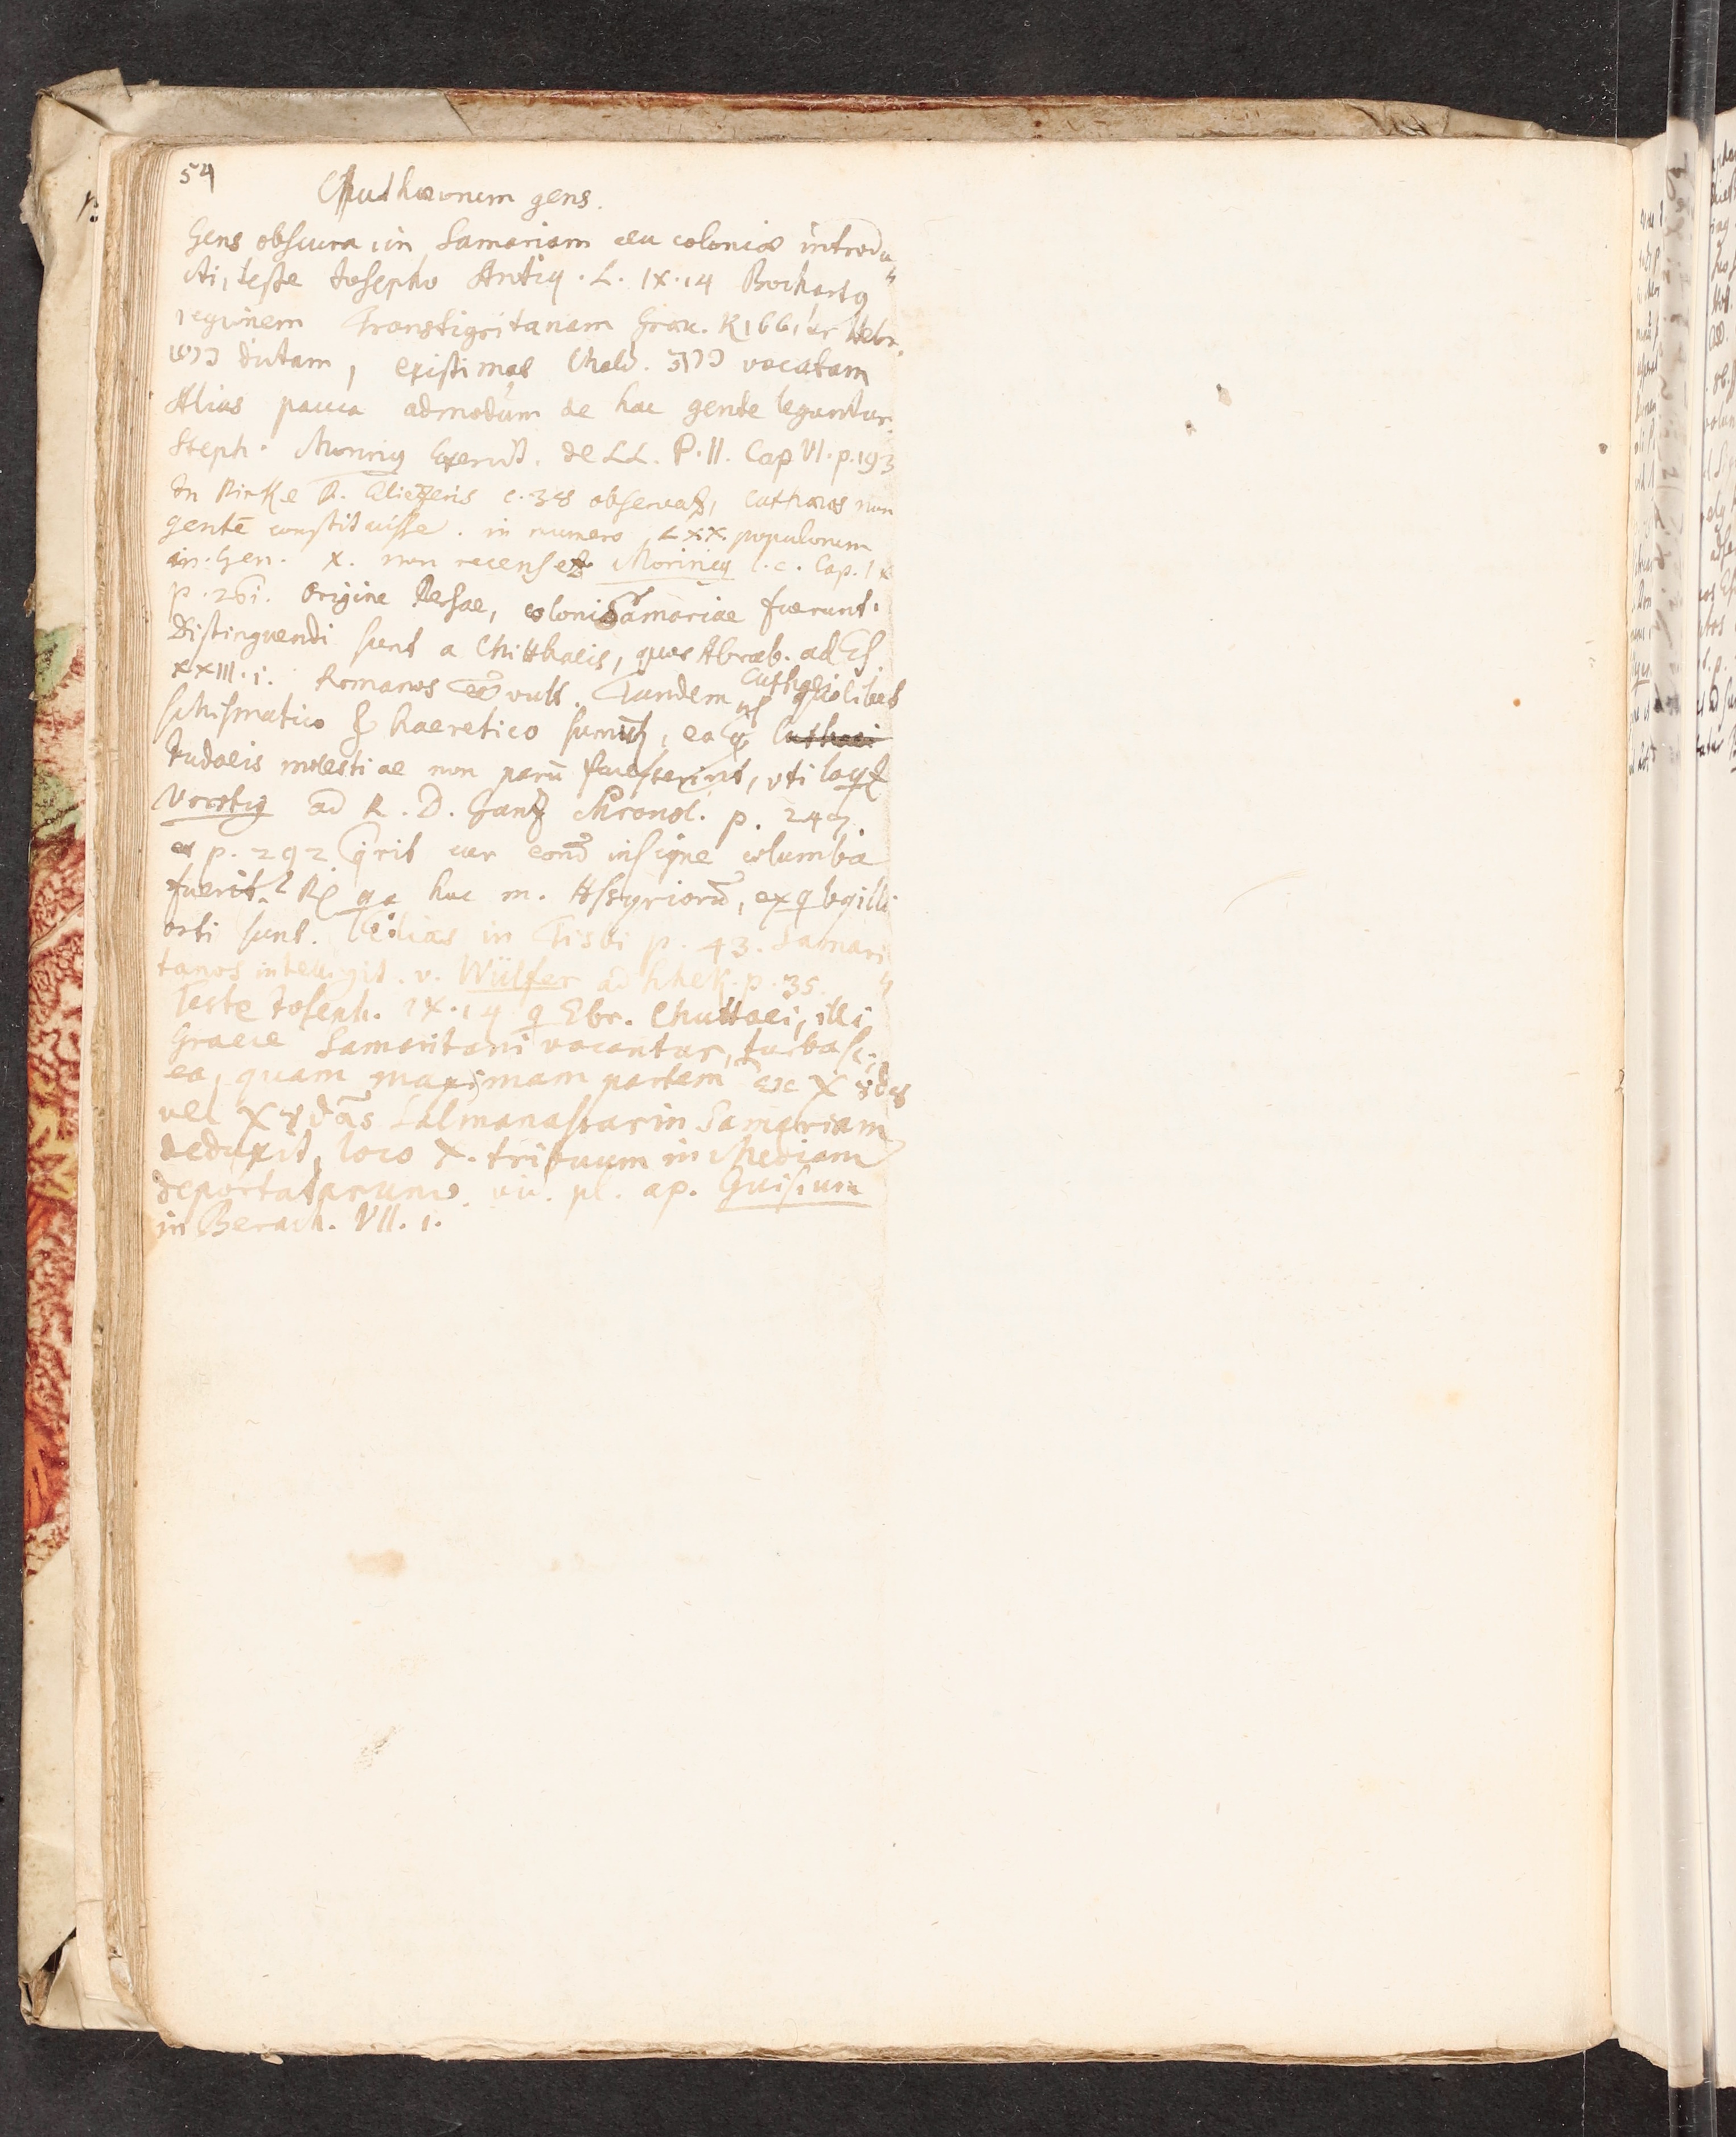 54
Chuthaeorum gens.
Gens obscura, in Samariam ceu coloniae introdu„
cti, teste Josepho Antiq. L. IX. 14 Bochartus
regionem Transtigritanam Graec. Κισσία Hebr.
כוש dictam, existimat Chald. כות vocatam
Alias pauca admodum de hac gente leguntur.
Steph. Morinus Exercit. de LL. P. II. Cap VI. p. 193
In Pirke R. Eliezeris c. 38 observat, Cuthaeos non
gentē constituisse. in numero LXX. populorum
in Gen. X. non recenset Morinus l. c. Cap. IX
p. 261. Origine Persae, coloni Samariae fuerunt.
Distinguendi sunt a Chitthaeis, quos Abrab. ad Es.
XXIII. 1. Romanos vult. Tandem Cuthaei
schismatico & haeretico sumitur, eaq Cuthaei
Judaeis molestiae non parū facesserint, uti loqt
Vorstius ad R. D. Ganz Chronol. p. 247.
et p. 292 qrit cur eorū insigne columba
fuerit? Rs qa hac m. Assyriorū, ex qbq illi
orti sunt. Elias in Tisbi p. 43. Samari„
tanos intelligit. v. Wülfer ad p. 35.
Teste Joseph. IX. 14 q Ebr. Chuttaei, illi
Graece Samaritani vocantur, turba sc.
ea, quam maximam partem ex
vel Salmanassar in Samariam
deduxit, loco X. tribuum in Mediam
deportatarum. vid. pl. ap. Guisium
in Berach. VII. 1.